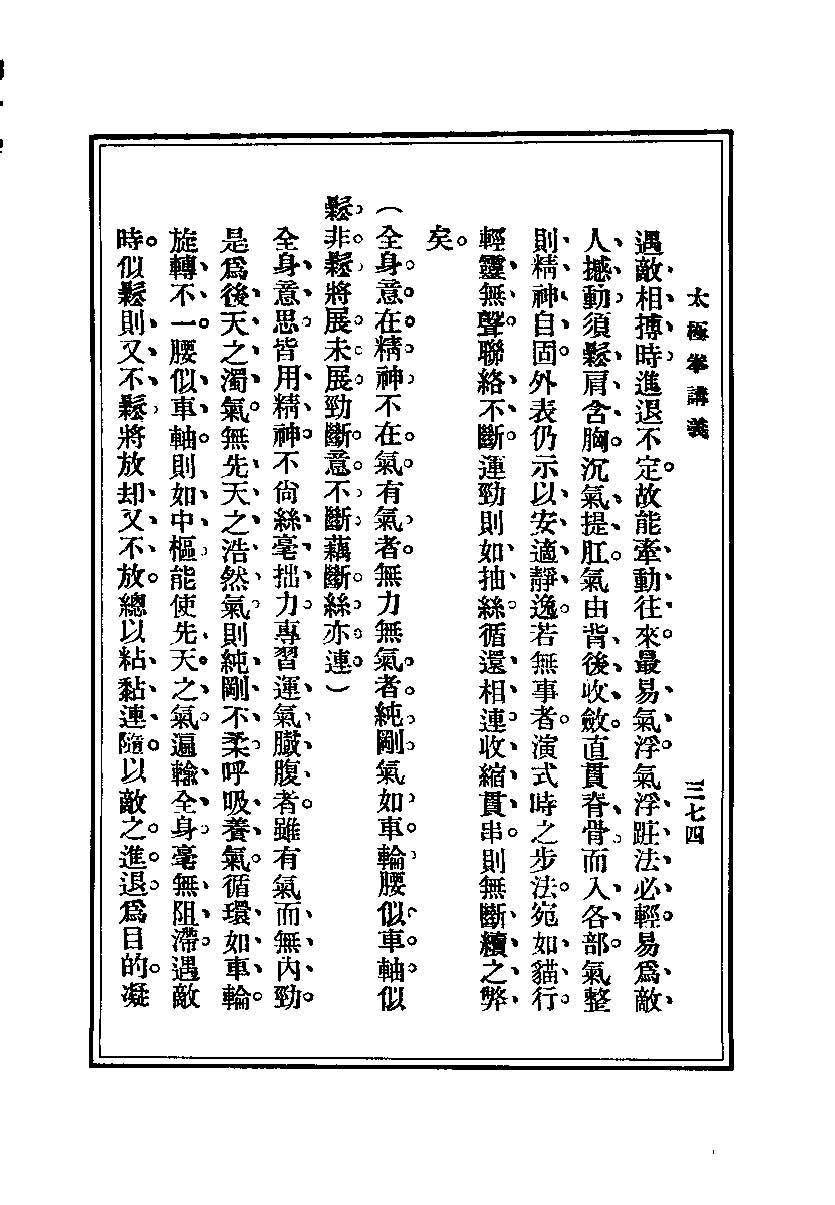 太極拳講義
三七四
遇敵相搏時進退不定。故能牽動往來。最易氣浮氣浮跓法必輕易爲敵
人撼動須鬆肩含胸。沉氣提肛。氣由背後收斂。直貫脊骨而入各部。氣整
則精神自固。外表仍示以安適靜逸。若無事者。演式時之步法。宛如貓行。
輕靈無聲。聯絡不斷。運勁則如抽絲。循還相連。收縮貫串。則無斷續之弊
矣。
(全身意在精神不在氣。有氣者無力無氣者純剛。氣如車輪腰似車軸。似
鬆非鬆將展未展。勁斷意不斷藕斷絲亦連。)
全身意思皆用精神。不尙絲毫拙力。專習運氣臟腹者。雖有氣而無內勁。
是爲後天之濁氣。無先天之浩然氣則純剛不柔。呼吸養氣。循環如車輪。
旋轉不一。腰似車軸。則如中樞能使先天之氣。遍輸全身毫無阻滯。遇敵
時。似鬆則又不鬆將放却又不放。總以粘黏連隨。以敵之進退爲目的。凝